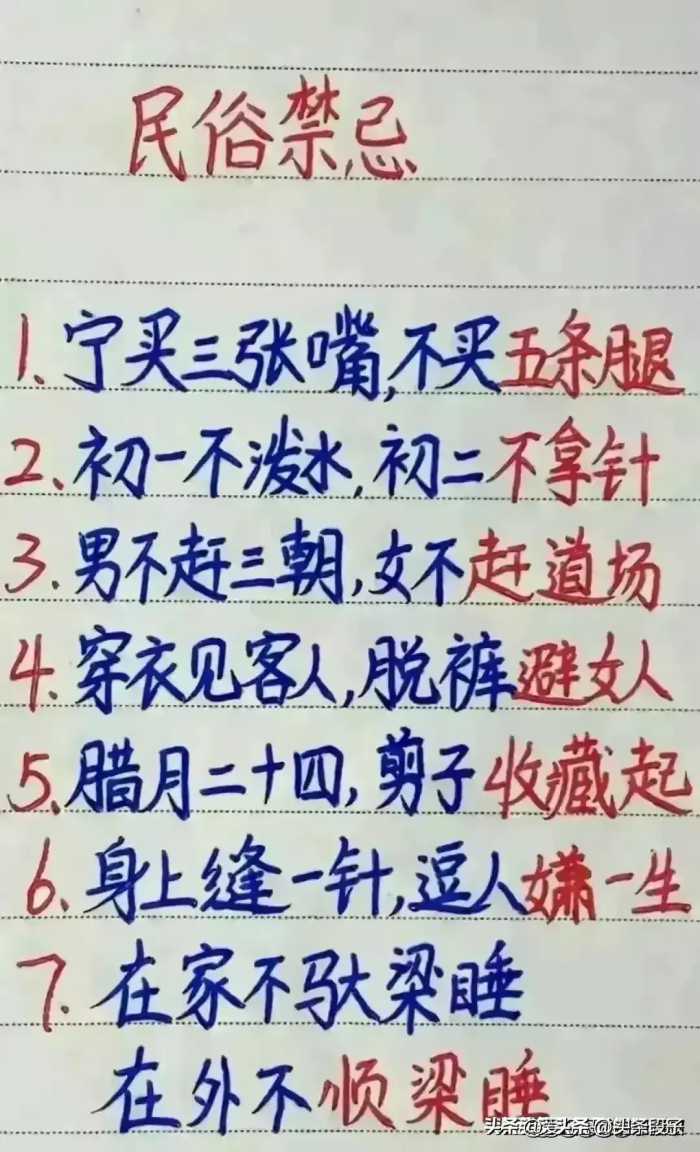 民俗禁忌
1. 宁买三张嘴,不买五条腿
2. 初一不泼水,初二不拿针
3. 男不赶三朝,女不赶道场
4. 穿衣见客人,脱裤避女人
5. 腊月二十四,剪子收藏起
6. 身上缝一针,逗人嫌一生
7. 在家不驮梁睡
在外不顺梁睡